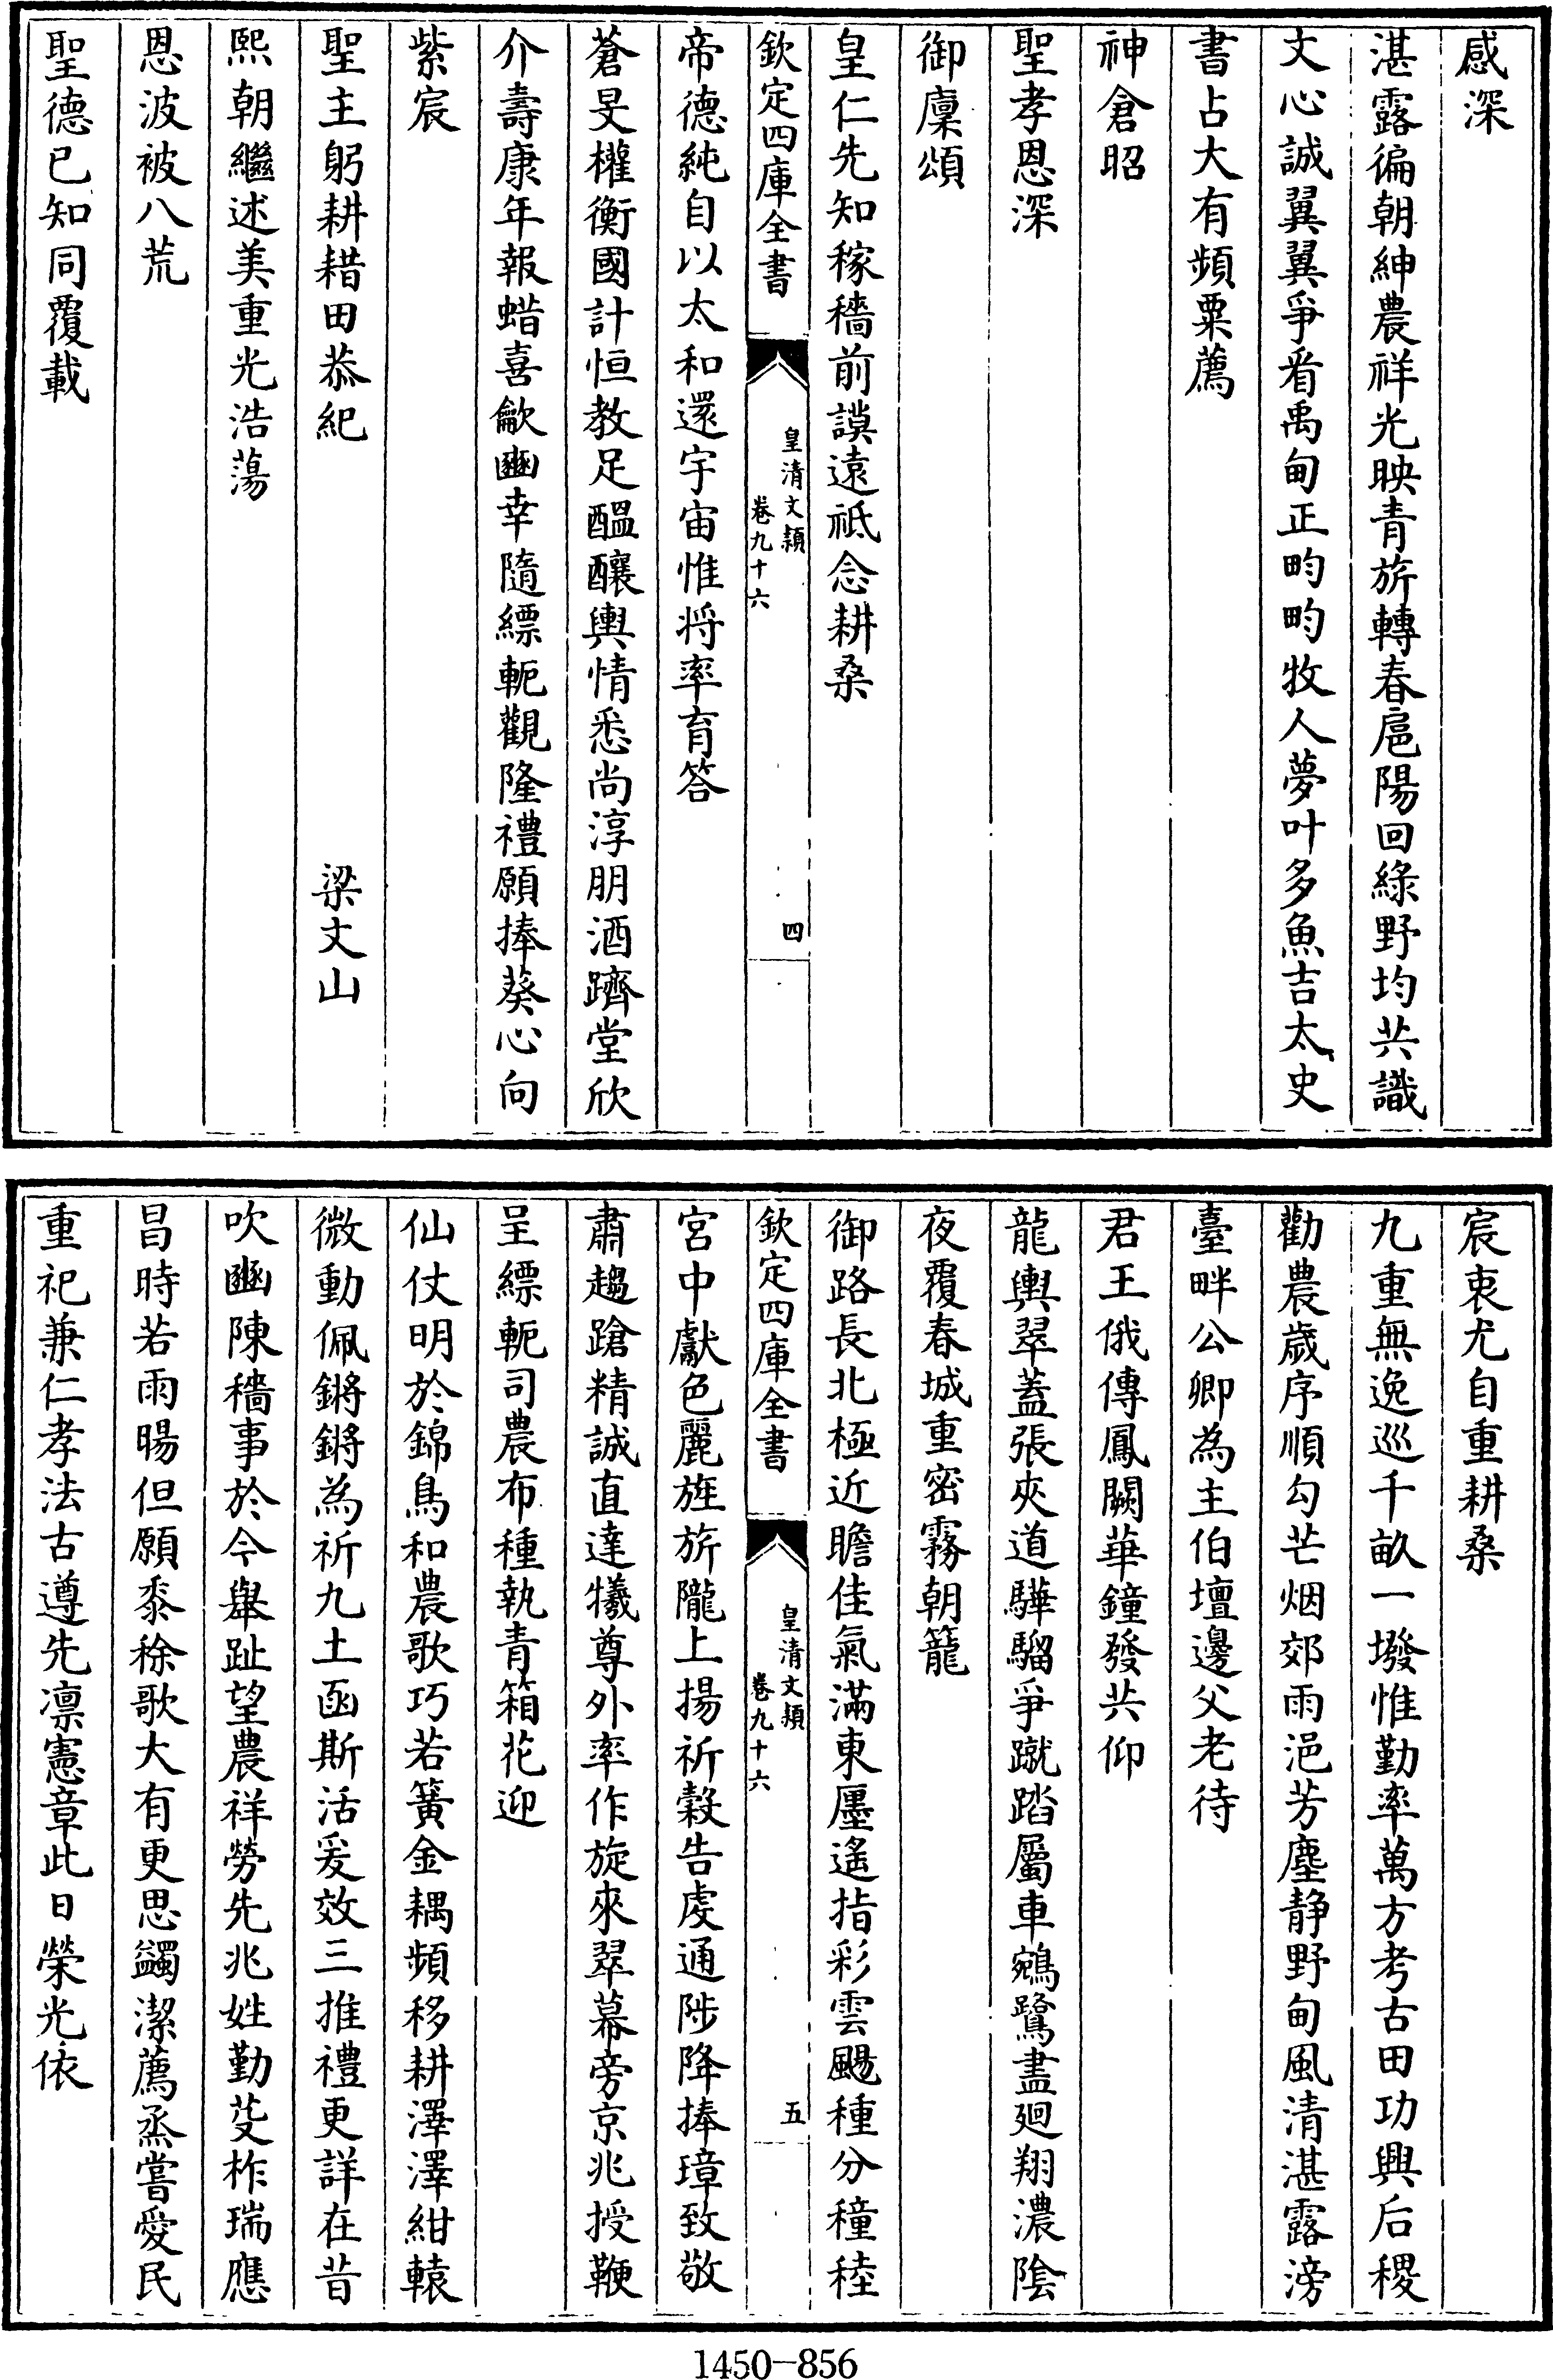 感深
湛露徧朝紳農祥光映青旂轉春扈陽回綠野均共識
文心誠翼翼爭看禹甸正畇畇牧人夢叶多魚吉太史
書占大有頻粟薦
神倉昭
聖孝恩深
御廩頌
皇仁先知稼穡前謨遠祗念耕桑
欽定四庫全書
皇清文穎
卷九十六
四
帝德純自以太和還宇宙惟将率育答
蒼旻權衡國計恒教足醞釀輿情悉尚淳朋酒躋堂欣
介壽康年報蜡喜龡豳幸隨縹軛觀隆禮願捧葵心向
紫宸
聖主躬耕耤田恭紀
梁文山
熙朝繼述美重光浩蕩
恩波被八荒
聖德已知同覆載
宸衷尤自重耕桑
九重無逸巡千畝一墢惟勤率萬方考古田功興后稷
勸農歲序順勾芒烟郊雨浥芳塵静野甸風清湛露滂
臺畔公卿為主伯壇邊父老待
君王俄傳鳳闕華鐘發共仰
龍輿翠蓋張夾道驊騮爭蹴踏屬車鵷鷺盡廻翔濃陰
夜覆春城重密霧朝籠
御路長北極近瞻佳氣滿東㕓遙指彩雲颺種分穜稑
欽定四庫全書
皇清文穎
卷九十六
五
宮中獻色麗旌旂隴上揚祈穀告虔通陟降捧璋致敬
肅趨蹌精誠直達犧尊外率作旋來翠幕旁京兆授鞭
呈縹軛司農布種執青箱花迎
仙仗明於錦鳥和農歌巧若簧金耦頻移耕澤澤紺轅
微動佩鏘鏘為祈九土函斯活爰效三推禮更詳在昔
吹豳陳穡事於今舉趾望農祥勞先兆姓勤芟柞瑞應
昌時若雨暘但願黍稌歌大有更思蠲潔薦烝嘗愛民
重祀兼仁孝法古遵先凛憲章此日榮光依
1450-856